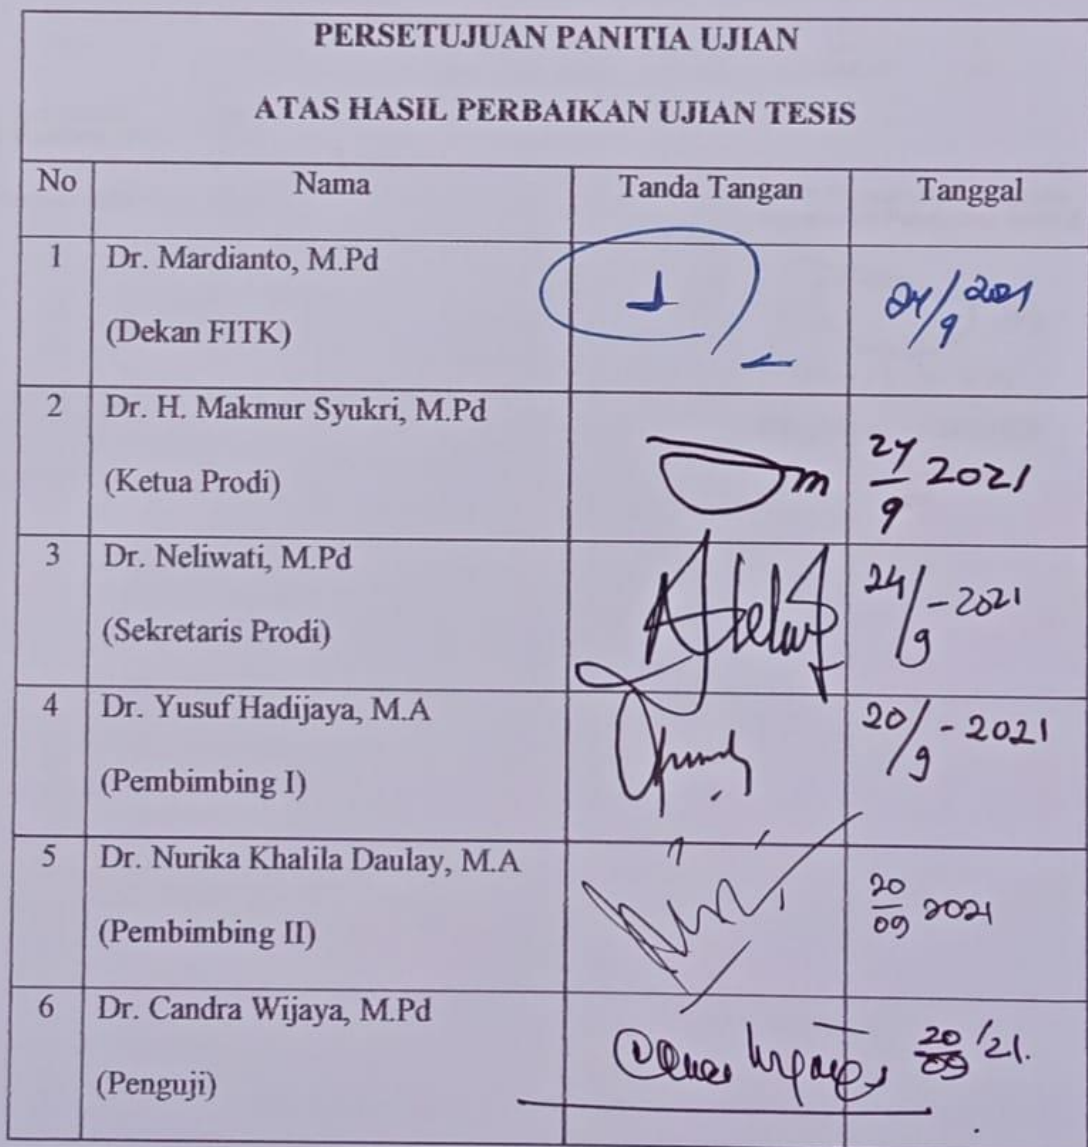 PERSETUJUAN PANITIA UJIAN
ATAS HASIL PERBAIKAN UJIAN TESIS
No Nama Tanda Tangan Tanggal
1 Dr. Mardianto, M.Pd
(Dekan FITK)
24/9 2021
2 Dr. H. Makmur Syukri, M.Pd
(Ketua Prodi)
24/9 2021
3 Dr. Neliwati, M.Pd
(Sekretaris Prodi)
24/9 - 2021
4 Dr. Yusuf Hadijaya, M.A
(Pembimbing I)
20/9 - 2021
5 Dr. Nurika Khalila Daulay, M.A
(Pembimbing II)
20/09 2021
6 Dr. Candra Wijaya, M.Pd
(Penguji)
20/09 '21.